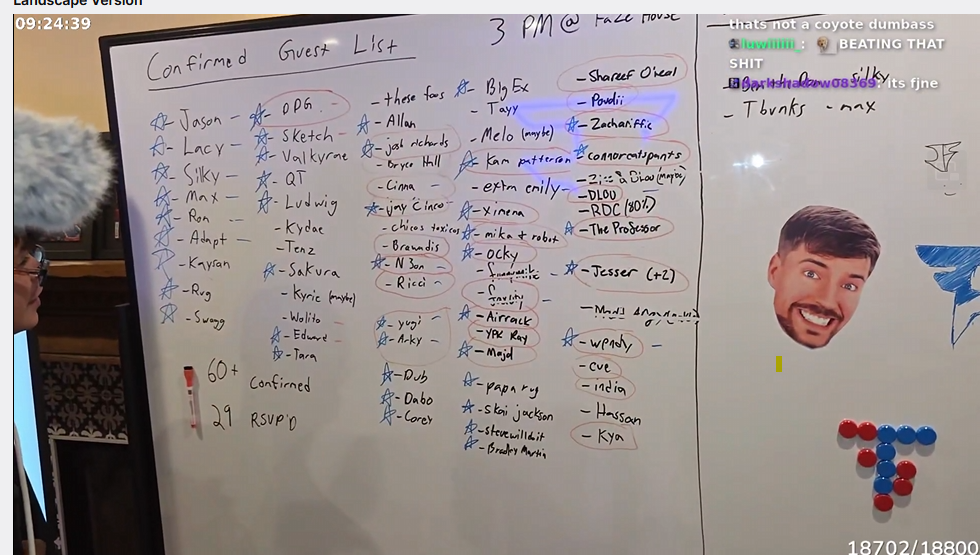 Landscape Version
09:24:39
Confirmed Guest List
3 PM @ FaZe House
thats not a coyote dumbass
luwiiiii_: BEATING THAT
SHIT
parkshadow08369: its fjne
silky
- Tbunks - max
Jason -
Lacy -
Silky -
Max -
Ron -
- Adapt -
- Kaysan
- Rug
- Swagg
60+ Confirmed
29 RSVP'D
DDG
Sketch -
Valkyrae
QT
Ludwig
- Kydae
- Tenz
- Sakura
- Kyric (maybe)
- Wolito
- Edward -
- Tara
- these foos
- Allan
- josh richards
- Bryce Hall
- Cinna -
- jay Cinco -
- chicos toxicos
- Brawadis
- N3on -
- Ricci -
- yugi -
- Arky -
- Dub
- Dabo
- Corey
- Big Ex
- Tayy
- Melo (maybe)
- Kam patterson
- extra emily -
- Ximena
- mika + robot
- ocky
- Airrack
- YPK Ray
- Majd
- papa ny
- skai jackson
- stevewilldoit
- Bradley Martin
- Shareef O'neal
- Poudii
- Zachariffic
- connoreatspants
- DLOU
- RDC (80%)
- The Professor
- Jesser (+2)
- wendy -
- cve
- india
- Hassan
- Kya
18702/18800